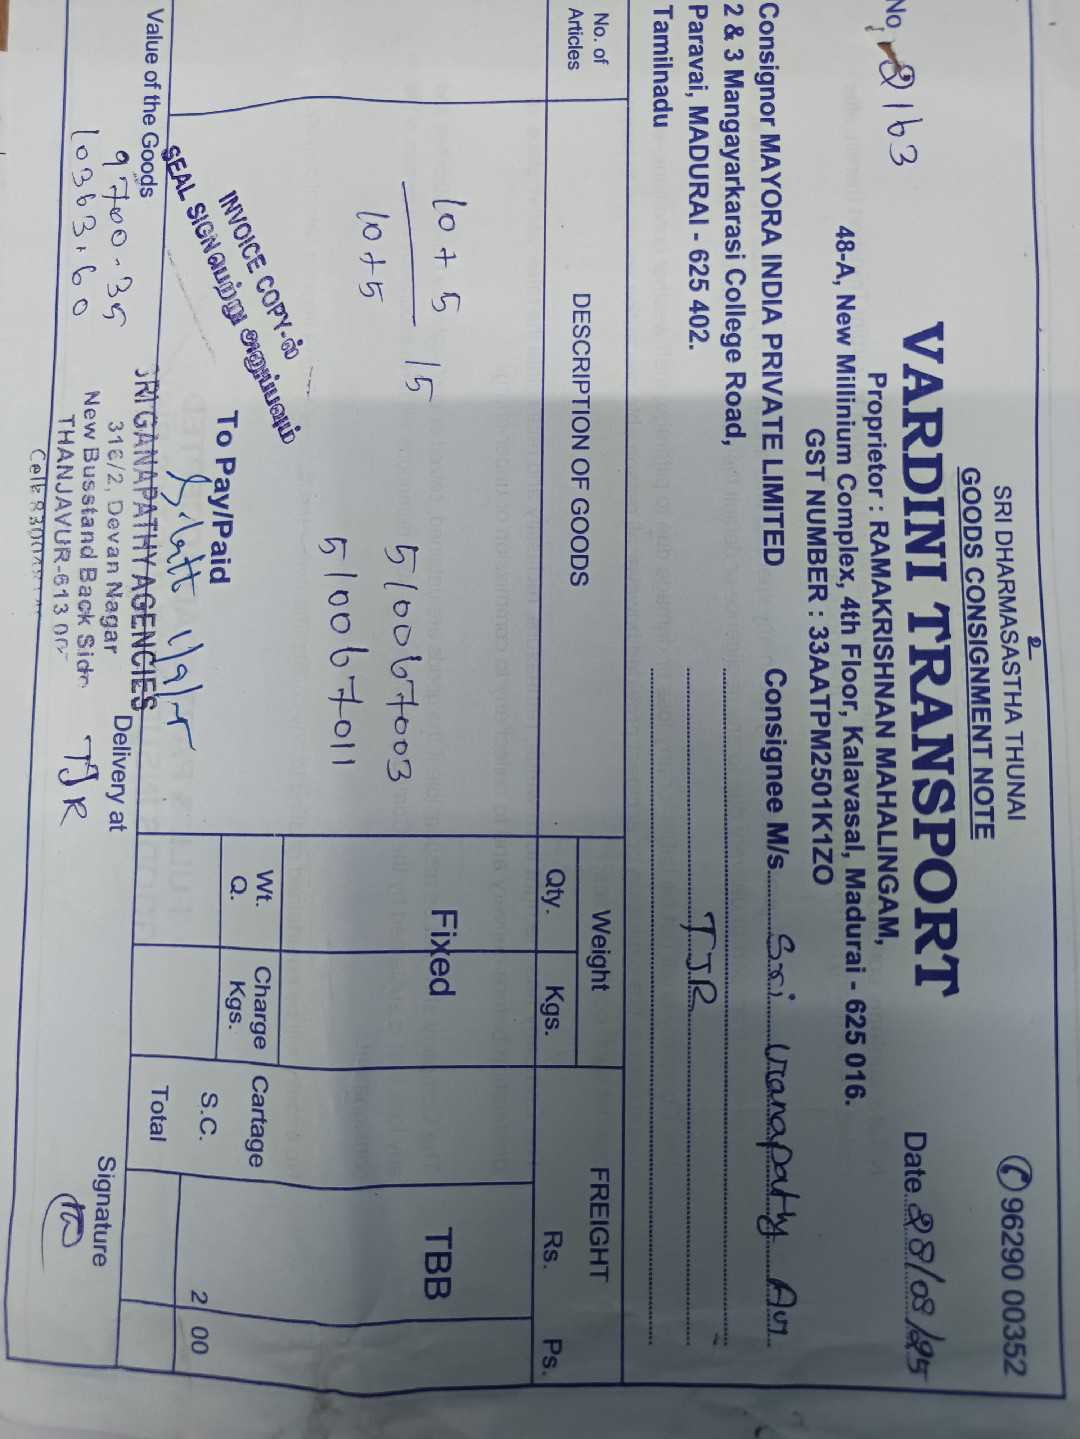 SRI DHARMASASTHA THUNAI
GOODS CONSIGNMENT NOTE
96290 00352
VARDINI TRANSPORT
No. 2163
Date 28/08/25
Proprietor : RAMAKRISHNAN MAHALINGAM,
48-A, New Millinium Complex, 4th Floor, Kalavasal, Madurai - 625 016.
GST NUMBER : 33AATPM2501K1ZO
Consignor MAYORA INDIA PRIVATE LIMITED
2 & 3 Mangayarkarasi College Road,
Paravai, MADURAI - 625 402.
Tamilnadu
Consignee M/s. Sri Ganapathy
TJR
No. of Articles
DESCRIPTION OF GOODS
Weight
Qty.
Kgs.
FREIGHT
Rs.
Ps.
10+5
15
510067003
10+5
510067011
Fixed
TBB
INVOICE COPY-ல்
SEAL SIGN பெற்று அனுப்பவும்
To Pay/Paid
Wt. Q.
Charge Kgs.
Cartage
S.C.
2 00
Total
Value of the Goods
9700.35
10363.60
SRI GANAPATHY AGENCIES
316/2, Devan Nagar
New Busstand Back Side
THANJAVUR-613 00
Delivery at
TJR
Signature